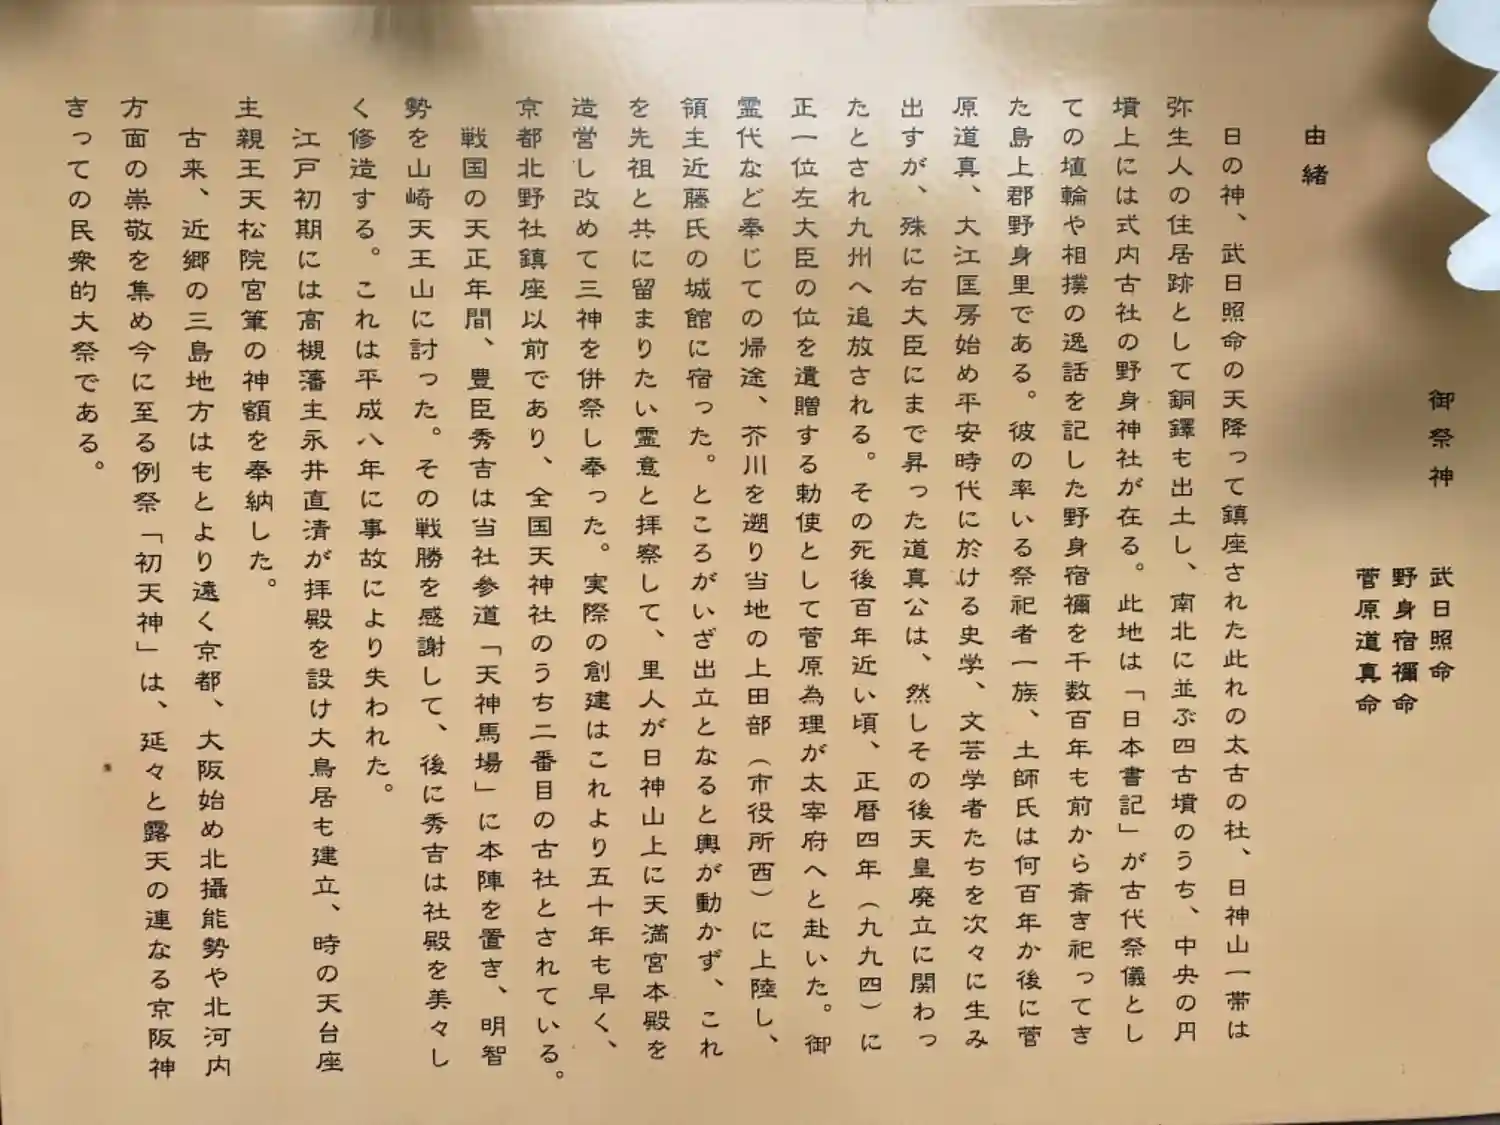 御祭神
武日照命
野身宿禰命
菅原道真命
由緒
日の神、武日照命の天降って鎮座された此れの太古の杜、日神山一帯は
弥生人の住居跡として銅鐸も出土し、南北に並ぶ四古墳のうち、中央の円
墳上には式内古社の野身神社が在る。此地は「日本書記」が古代祭儀とし
ての埴輪や相撲の逸話を記した野身宿禰を千数百年も前から斎き祀ってき
た島上郡野身里である。彼の率いる祭祀者一族、土師氏は何百年か後に菅
原道真、大江匡房始め平安時代に於ける史学、文芸学者たちを次々に生み
出すが、殊に右大臣にまで昇った道真公は、然しその後天皇廃立に関わっ
たとされ九州へ追放される。その死後百年近い頃、正暦四年（九九四）に
正一位左大臣の位を遺贈する勅使として菅原為理が太宰府へと赴いた。御
霊代など奉じての帰途、芥川を遡り当地の上田部（市役所西）に上陸し、
領主近藤氏の城館に宿った。ところがいざ出立となると輿が動かず、これ
を先祖と共に留まりたい霊意と拝察して、里人が日神山上に天満宮本殿を
造営し改めて三神を併祭し奉った。実際の創建はこれより五十年も早く、
京都北野社鎮座以前であり、全国天神社のうち二番目の古社とされている。
戦国の天正年間、豊臣秀吉は当社参道「天神馬場」に本陣を置き、明智
勢を山崎天王山に討った。その戦勝を感謝して、後に秀吉は社殿を美々し
く修造する。これは平成八年に事故により失われた。
江戸初期には高槻藩主永井直清が拝殿を設け大鳥居も建立、時の天台座
主親王天松院宮筆の神額を奉納した。
古来、近郷の三島地方はもとより遠く京都、大阪始め北攝能勢や北河内
方面の崇敬を集め今に至る例祭「初天神」は、延々と露天の連なる京阪神
きっての民衆的大祭である。